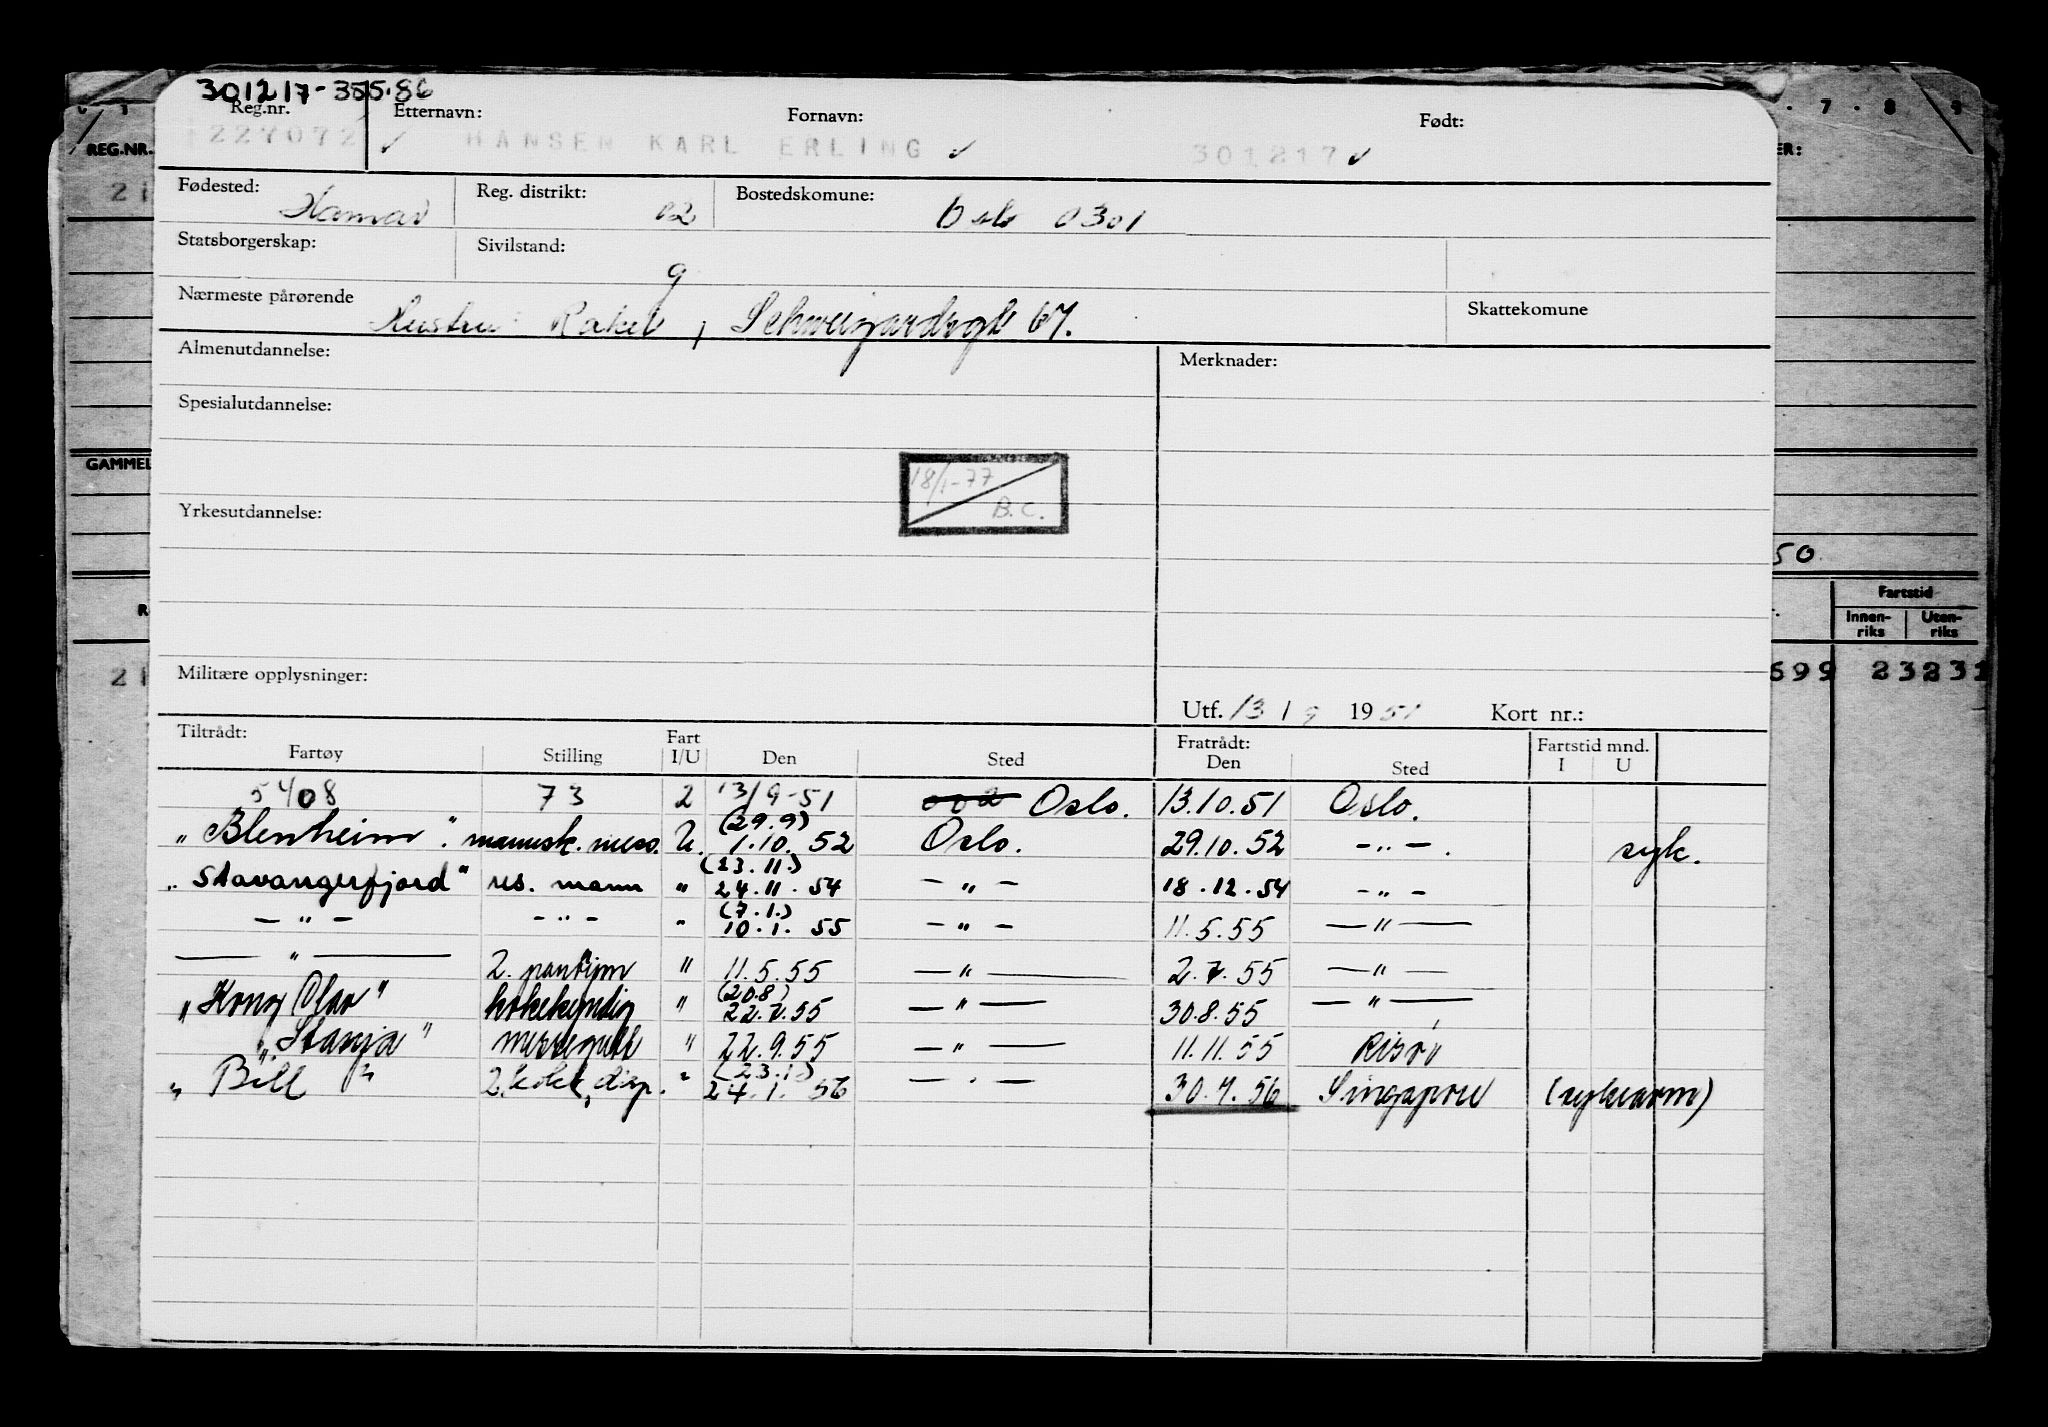 301217-355.86
Reg.nr. Etternavn: Fornavn: Født:
227072 ✓ HANSEN KARL ERLING ✓ 301217 ✓
Fødested: Hamar Reg. distrikt: 02 Bostedskomune: Oslo 0301
Statsborgerskap: Sivilstand: g
Nærmeste pårørende Hustru Rakel, Schweigaardsgt 67. Skattekomune
Almenutdannelse: Merknader:
Spesialutdannelse:
18/1-77
B.C.
Yrkesutdannelse:
Militære opplysninger:
Utf. 13 / 9 1951 Kort nr.:
Tiltrådt: Fart Fratrådt: Fartstid mnd.
Fartøy Stilling I/U Den Sted Den Sted I U
5408 73 2 13/9-51 002 Oslo. 13.10.51 Oslo.
(29.9)
"Blenheim". mannsk. mess. U. 1.10.52 Oslo. 29.10.52 — " — . syk.
(23.11.)
"Stavangerfjord" res. mann " 24.11.54 — " — 18.12.54 — " —
(7.1.)
— " — — " — " 10.1.55 — " — 11.5.55 — " —
— " — 2. " 11.5.55 — " — 2.7.55 — " —
(20.8)
"Kong Olav" kokekyndig " 22.7.55 — " — 30.8.55 — " —
"Stanja" messegutt " 22.9.55 — " — 11.11.55
(23.1.)
"Bill" 2. kokk, disp. " 24.1.56 — " — 30.7.56 Singapore
REG.NR.
21
GAMMEL
R
21
7 · 8 9
ER:
50
Fartstid
Innen-riks Uten-riks
699 23231